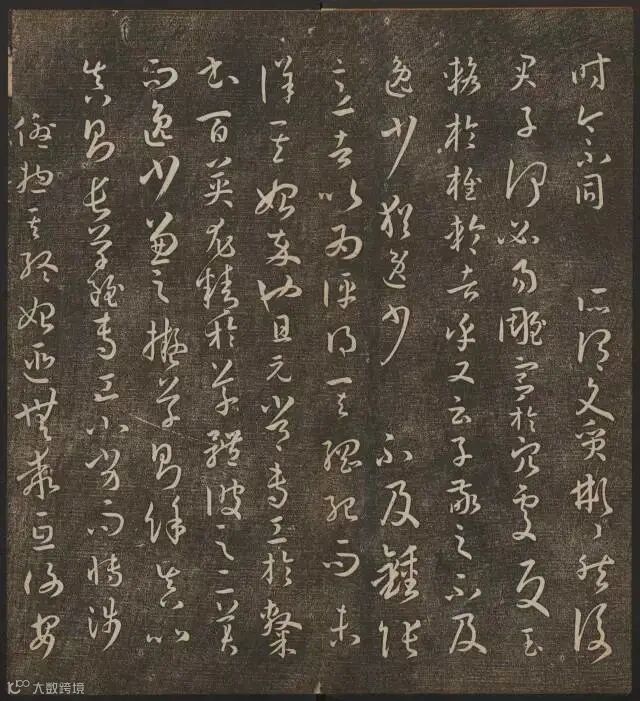 時今不同 所謂文質彬彬然後
君子何必易雕宮於穴處反玉
輅於椎輪者乎又云子敬之不及
逸少猶逸少 不及鍾張
意者以為評得其綱紀而未
詳其始卒也且元常專工於隸
書百英尤精於草體彼之二美
而逸少兼之擬草則餘真比
真則長草雖專工小劣而博涉
優揔其終始匪無乖互謝安
大数跨境